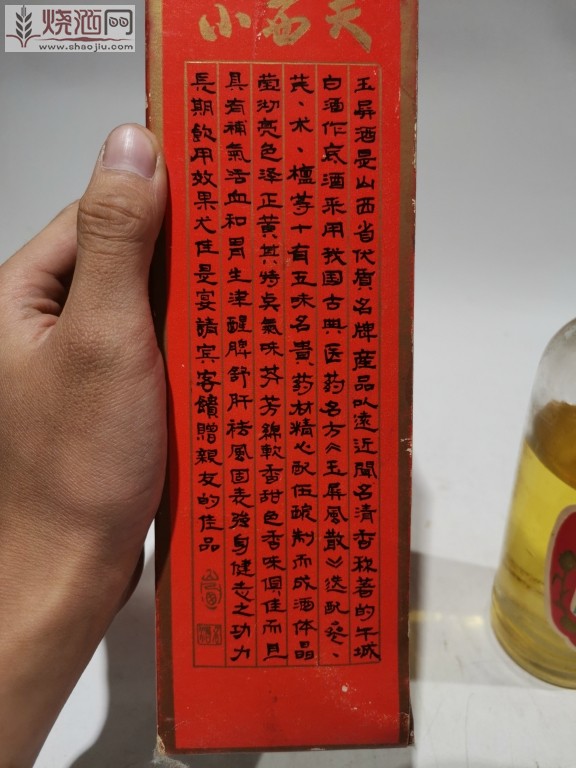 烧酒网
www.shaojiu.com
小西天
玉屏酒是山西省优质名牌産品以遠近聞名清香称著的午城
白酒作底酒采用我国古典医药名方《玉屏風散》选配参、
芪、术、檀等十有五味名貴药材精心配伍酿制而成酒体晶
莹彻亮色泽正黄其特点氣味芬芳綿軟香甜色香味俱佳而且
具有補氣活血和胃生津醒脾舒肝祛風固表强身健志之功力
長期飲用效果尤佳是宴請宾客饋贈親友的佳品